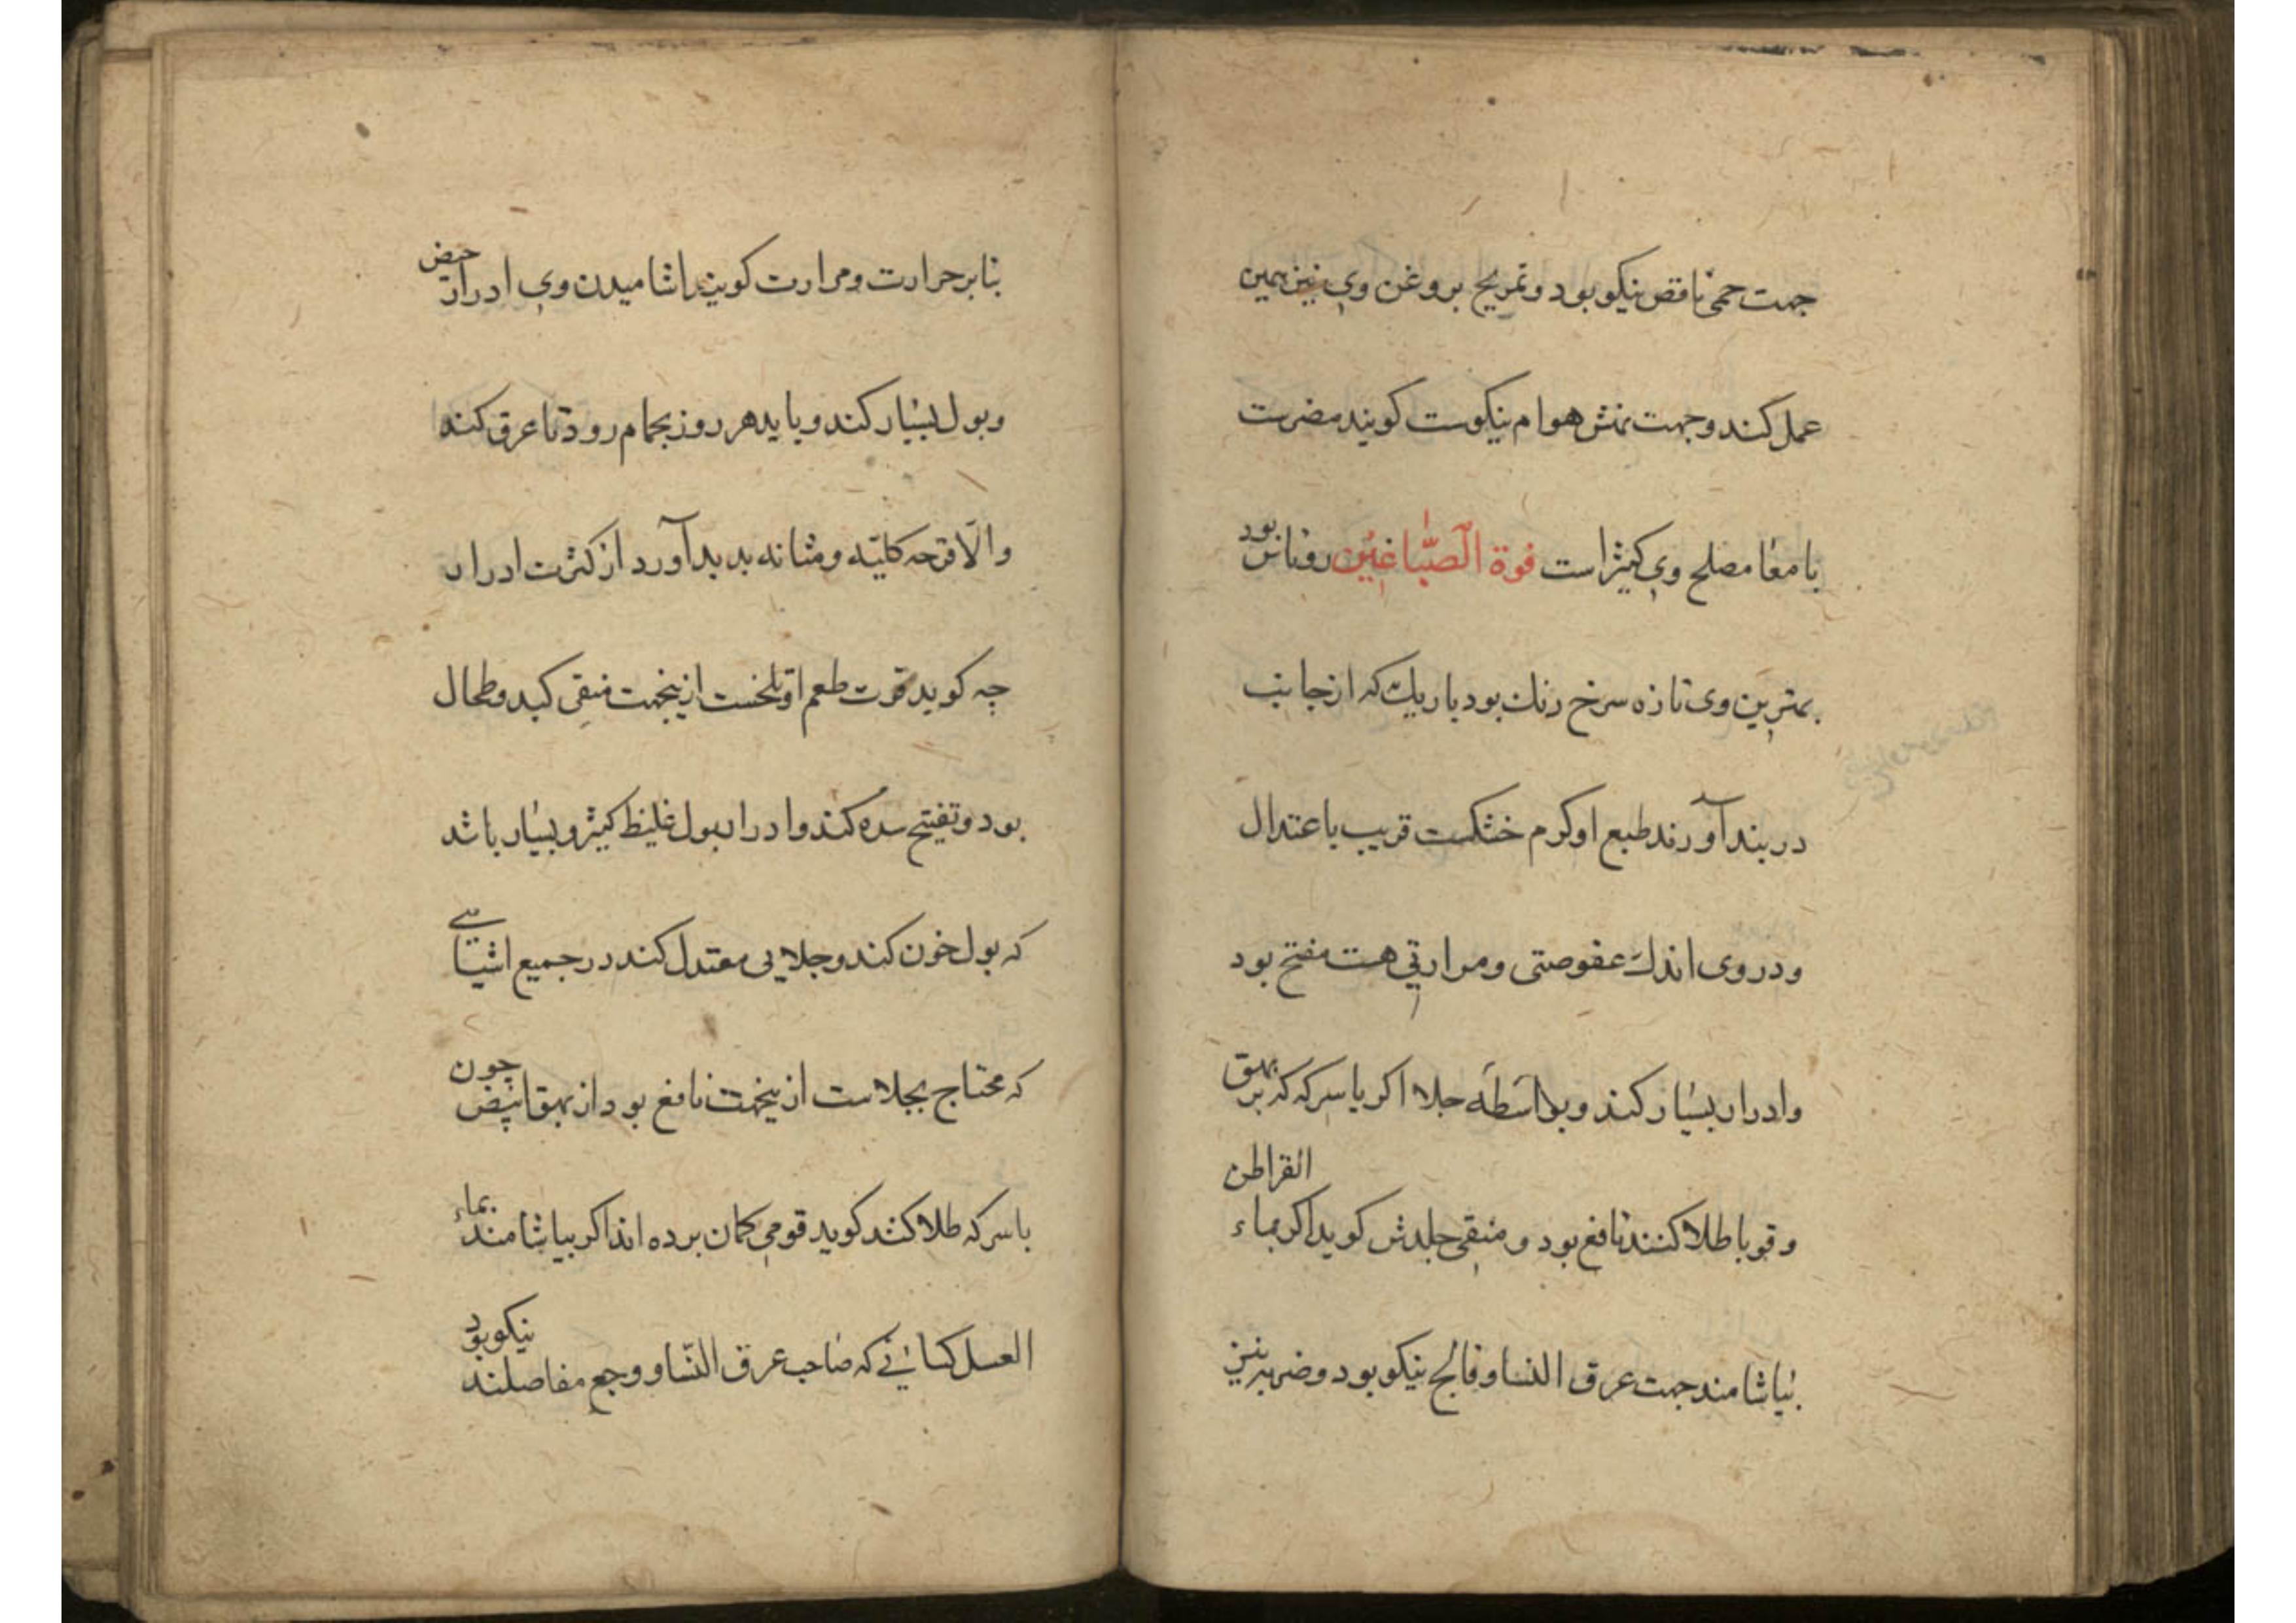 جهت حمی ناقص نیکو بود و تمریخ بروغن وی نیز همین
عمل کند و جهت نهش هوام نیکوست کویند مضرست
بامعا مصلح وی کیثرا است فوة الصباغین روناس بود
بهترین وی تازه سرخ رنك بود باریك که از جانب
دربند آورند طبع او کرم خشکست قریب باعتدال
و در وی اندك عفوصتی و مرارتی هست مفتح بود
و ادرار بسیار کند و بواسطه جلا اکر با سرکه که بر بهق
و قوبا طلا کنند نافع بود و منقی جلدش کوید اکر بماء القراطن
بیاشامند جهت عرق النسا و فالج نیکو بود و ضربه نیز
بنابر حرارت و مرارت کویند اشامیدن وی ادرار حیض
و بول بسیار کند و باید هر روز بحمام رود تا عرق کند
والّا قرحه کلیه و مثانه بدید آورد از کثرت ادرار
چه کوید قرت طعم او تلخست ازینجهت منقی کبد و طحال
بود و تفتیح سده کند و ادرار بول غلیظ کیثر و بسیار باشد
که بول خون کند و جلایی معتدل کند در جمیع اشیائی
که محتاج بجلاست ازینجهت نافع بود از بهق ابیض چون
با سرکه طلا کنند کوید قومی کمان برده اند اکر بیاشامند بماء
العسل کسانی که صاحب عرق النّسا و وجع مفاصلند نیکو بود